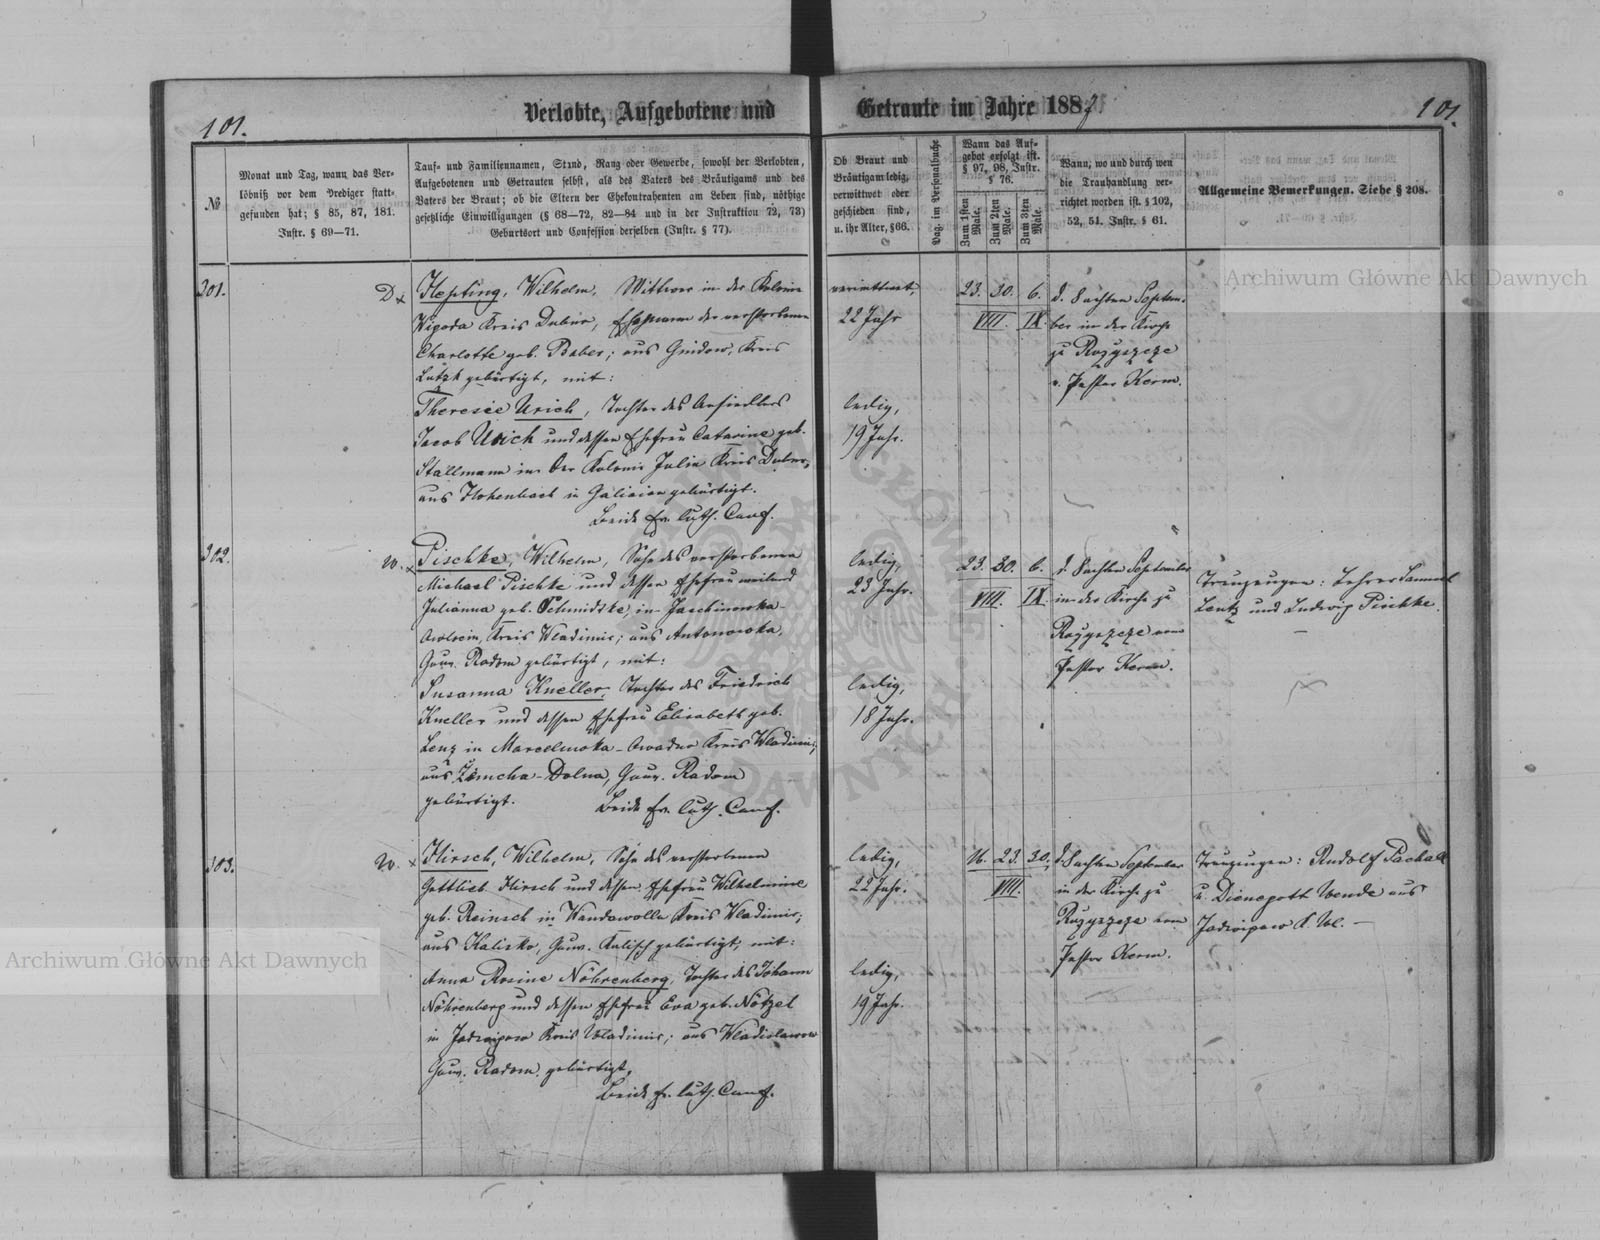 101.
Verlobte, Aufgebotene und
Getraute im Jahre 1887.
101.
№
Monat und Tag, wann das Ver-
löbniß vor dem Prediger statt-
gefunden hat; § 85, 87, 181.
Instr. § 69—71.
Tauf- und Familiennamen, Stand, Rang oder Gewerbe, sowohl der Verlobten,
Aufgebotenen und Getrauten selbst, als des Vaters des Bräutigams und des
Vaters der Braut; ob die Eltern der Ehekontrahenten am Leben sind, nöthige
gesetzliche Einwilligungen (§ 68—72, 82—84 und in der Instruktion 72, 73)
Geburtsort und Confession derselben (Instr. § 77).
Ob Braut und
Bräutigam ledig,
verwittwet oder
geschieden sind,
u. ihr Alter, §66.
Pag. im Personalbuche
Wann das Auf-
gebot erfolgt ist.
§ 97, 98, Instr.
§ 76.
Zum 1sten Male.
Zum 2ten Male.
Zum 3ten Male.
Wann, wo und durch wen
die Trauhandlung ver-
richtet worden ist. § 102,
52, 54. Instr. § 61.
Allgemeine Bemerkungen. Siehe § 208.
301.
D x
Hepting, Wilhelm, Wittwer in der Kolonie
Wigoda Kreis Dubno, Ehemann der verstorbenen
Charlotte geb. Baber; aus Gnidow, Kreis
Lutzk gebürtigt, mit:
Theresie Urich, Tochter des Ansiedlers
Jacob Urich und dessen Ehefrau Catarine geb.
Stallmann in der Kolonie Julin Kreis Dubno,
aus Hohenbach in Galizien gebürtigt.
Beide ev. luth. Conf.
verwittwet,
22 Jahr
ledig,
19 Jahr.
23. 30. 6.
VIII. IX.
d. Sechsten Septem-
ber in der Kirche
zu Rozyszcze
v. Pastor Kerm.
302.
W. x
Pischke, Wilhelm, Sohn des verstorbenen
Michael Pischke und dessen Ehefrau weiland
Julianna geb. Schmidtke, in
Kreis Wladimir; aus Antonowka,
Gouv. Radom gebürtigt, mit:
Susanna Kneller, Tochter des Friedrich
Kneller und dessen Ehefrau Elisabeth geb.
Lenz in Marcelinwka - Kreis Wladimir,
aus Zemcha-Dolna, Gouv. Radom
gebürtigt.
Beide ev. luth. Conf.
ledig,
23 Jahr.
ledig,
18 Jahr.
23. 30. 6.
VIII. IX.
d. Sechsten September
in der Kirche zu
Rozyszcze vom
Pastor Kerm.
Trauzeugen: Lehrer Samuel
Lentz und Ludwig Pischke.
303.
W. x
Hirsch, Wilhelm, Sohn des verstorbenen
Gottlieb Hirsch und dessen Ehefrau Wilhelmine
geb. Reinsch in Wandawolla Kreis Wladimir;
aus Kalisko, Gouv. Kalisch gebürtigt, mit:
Anna Rosine Nöhrenberg, Tochter des Johann
Nöhrenberg und dessen Ehefrau Eva geb. Nötzel
in Jadwipow Kreis Wladimir; aus Wladislawow
Gouv. Radom gebürtigt,
Beide ev. luth. Conf.
ledig,
22 Jahr.
ledig,
19 Jahr.
16. 23. 30.
VIII.
d. Sechsten September
in der Kirche zu
Rozyszcze vom
Pastor Kerm.
Trauzeugen: Rudolf
u. Wende aus
Jadwipow K. Wl. —
Archiwum Główne Akt Dawnych
Archiwum Główne Akt Dawnych